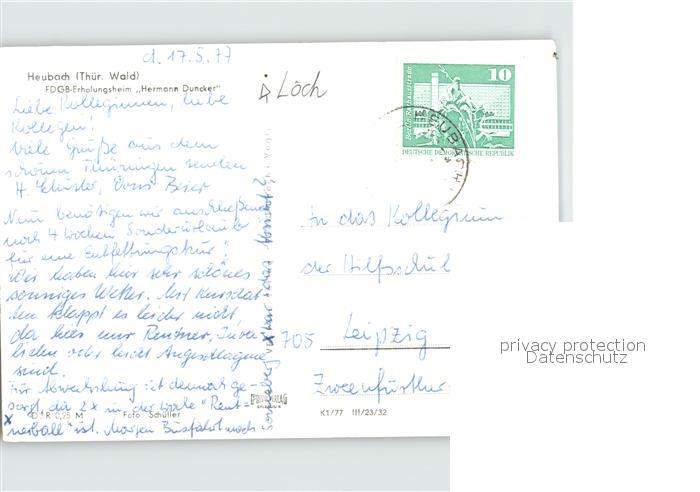 d. 17.5.77
Heubach (Thür. Wald)
FDGB-Erholungsheim „Hermann Duncker"
Löch
10
DEUTSCHE DEMOKRATISCHE REPUBLIK
HEUBACH
Liebe Kolleginnen, liebe
Kollegen!
Viele Grüße aus dem
schönen Thüringen senden
Nun benötigen wir anschließend
noch 4 Wochen Sonderurlaub
für eine Entfettungskur!
Wir haben hier sehr schönes
sonniges Wetter. Mit Kurschat-
ten klappt es leider nicht,
da hier nur Rentner, Inva-
liden oder leicht Angeschlagene
sind.
Für Abwechslung ist demnach ge-
sorgt, da 2x in der Woche "Rent-
nerball" ist. Morgen Busfahrt nach
Sonneberg
In das Kollegium
der Hilfsschul
705 Leipzig
Zweenfurther
privacy protection
Datenschutz
0,25 M Foto Schüller
K1/77 III/23/32